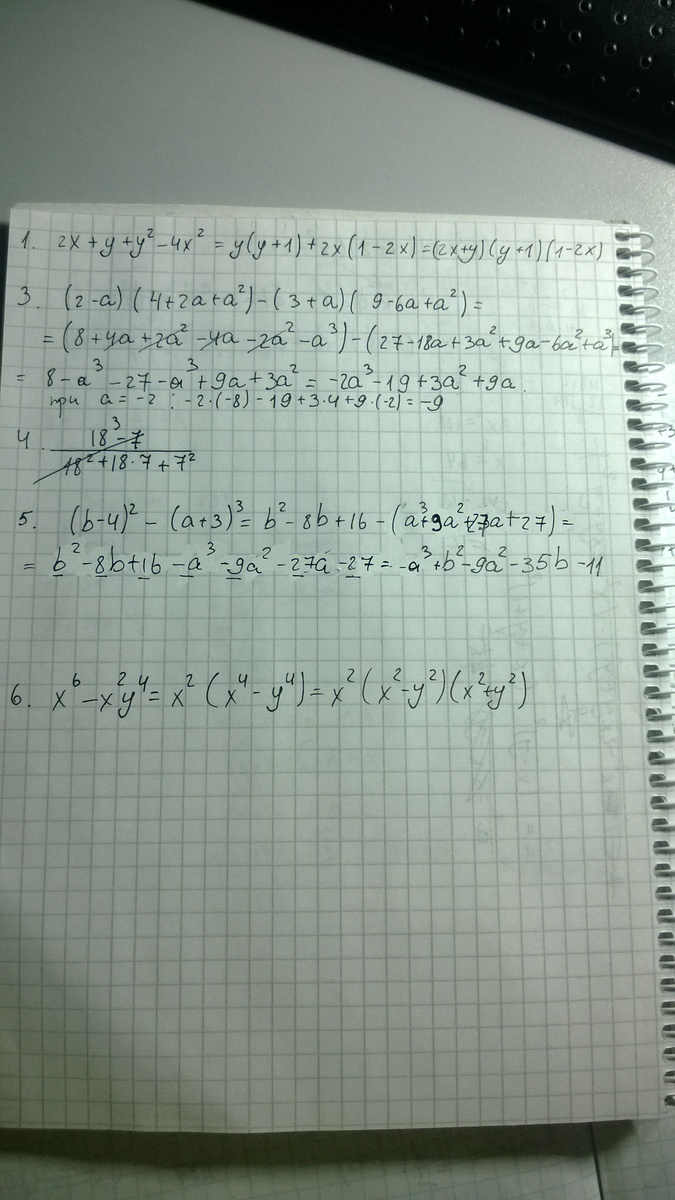 1. 2x + y + y² - 4x² = y(y+1) + 2x(1-2x) = (2x+y)(y+1)(1-2x)
3. (2-a)(4+2a+a²) - (3+a)(9-6a+a²) =
= (8+4a+2a²-4a-2a²-a³) - (27-18a+3a²+9a-6a²+a³) =
= 8-a³-27-a³+9a+3a² = -2a³-19+3a²+9a.
при a = -2 : -2·(-8)-19+3·4+9·(-2) = -9
4. 18³-7
18²+18·7+7²
5. (b-4)² - (a+3)³ = b²-8b+16-(a³+9a²+27a+27) =
= b²-8b+16-a³-9a²-27a-27 = -a³+b²-9a²-35b-11
6. x⁶-x²y⁴ = x²(x⁴-y⁴) = x²(x²-y²)(x²+y²)